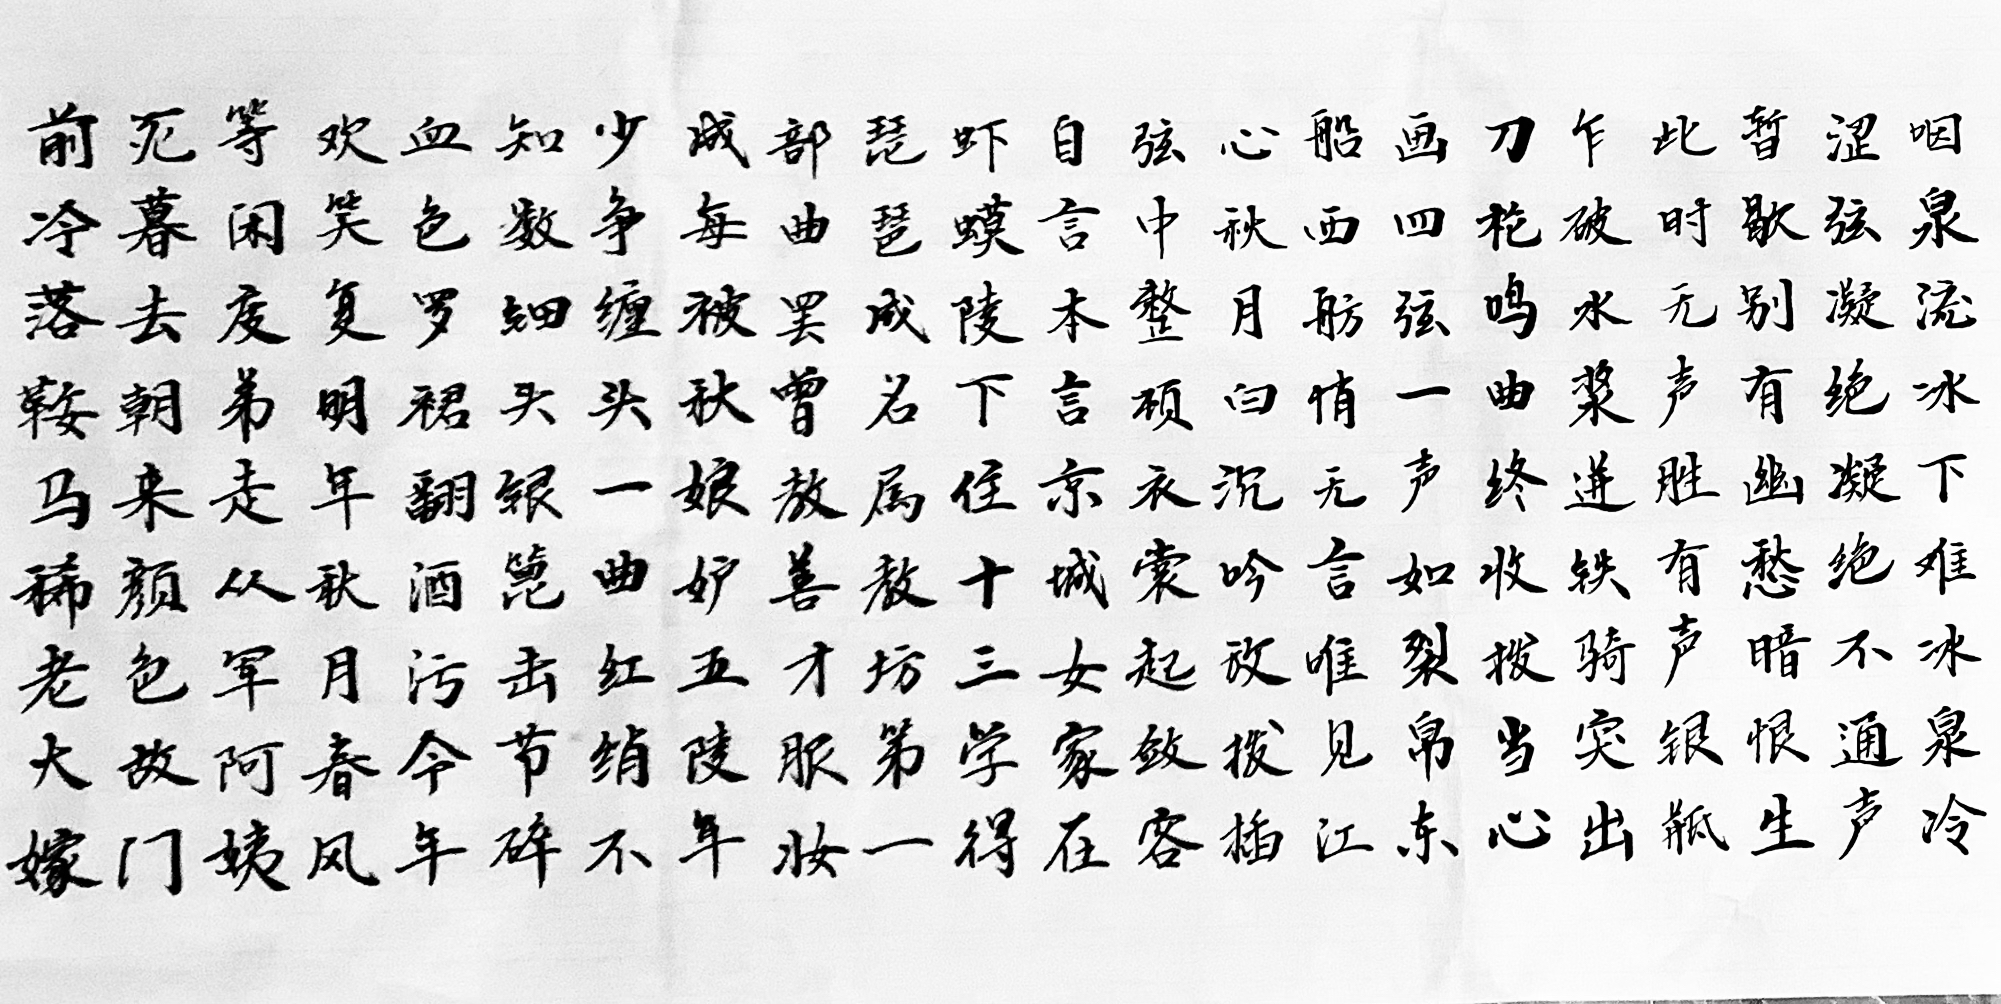 咽泉流冰下难冰泉冷
涩弦凝绝凝绝不通声
暂歇别有幽愁暗恨生
此时无声胜有声银瓶
乍破水浆迸铁骑突出
刀枪鸣曲终收拨当心
画四弦一声如裂帛东
船西舫悄无言唯见江
心秋月白沉吟放拨插
弦中整顿衣裳起敛容
自言本言京城女家在
虾蟆陵下住十三学得
琵琶成名属教坊第一
部曲罢曾教善才服妆
成每被秋娘妒五陵年
少争缠头一曲红绡不
知数钿头银篦击节碎
血色罗裙翻酒污今年
欢笑复明年秋月春风
等闲度弟走从军阿姨
死暮去朝来颜色故门
前冷落鞍马稀老大嫁